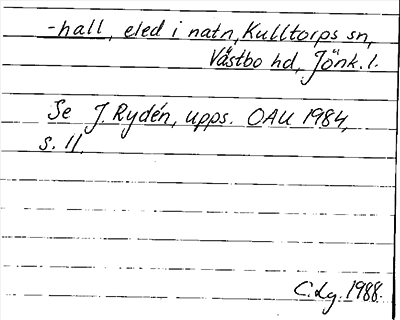 -hall, eled i natn, Kulltorps sn,
Västbo hd, Jönk. l.
Se J. Rydén, upps. OAU 1984,
s. 11.
C. Lg. 1988.